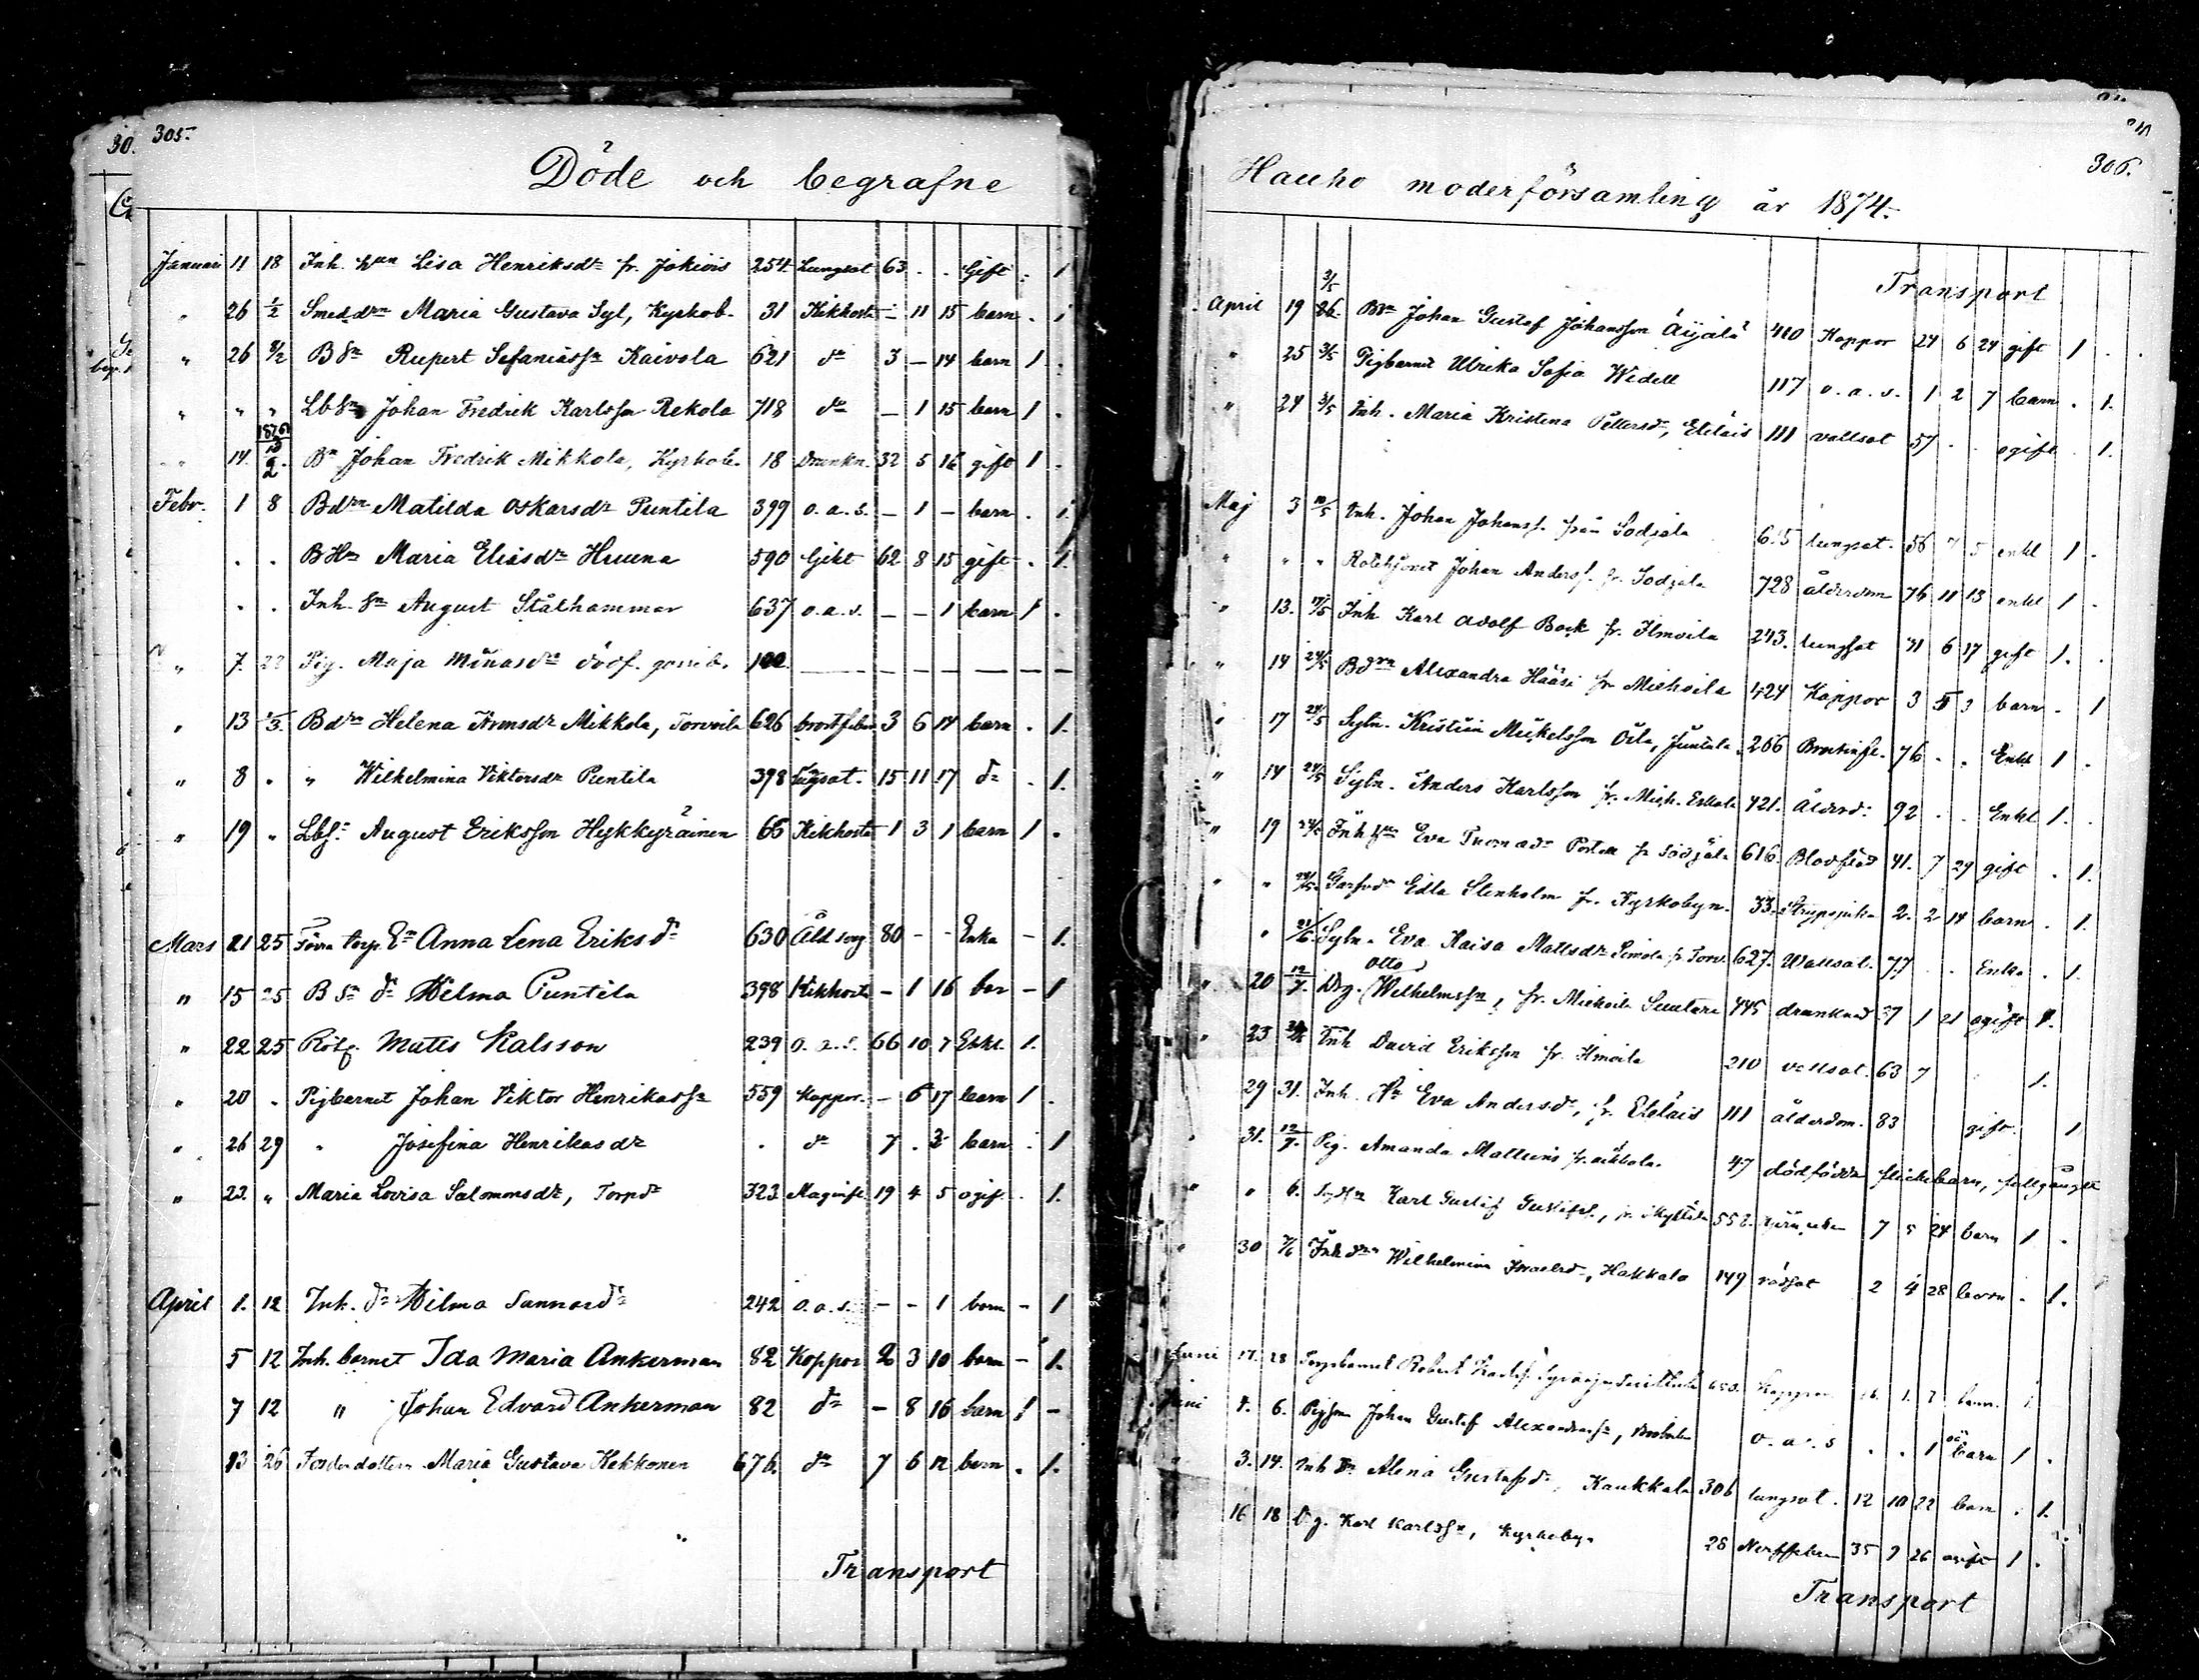 305.
Döde och begrafne
Januari 11 18 Inh. hun Lisa Henriksdr fr. Jokiois 254 Lungsot 63 . . Gift . 1
" 26 1/2 Smeddrn Maria Gustava Syl, Kyrkob. 31 Kikhosta – 11 15 barn . 1
" 26 8/2 B Sn Rupert Sefaniass Kaivola 621 do 3 – 14 barn 1 .
" " " Lb Sn Johan Fredrik Karlsson Rekola 718 do – 1 15 barn 1 .
" 14. Bn Johan Fredrik Mikkola, Kyrkob. 18 Drunkn. 32 5 16 gift 1 .
Febr. 1 8 Bdrn Matilda Oskarsdr Puntila 399 o. a. s. – 1 – barn . 1.
. . B Hn Maria Eliasdr Huuna 590 Gikt 62 8 15 gift . 1.
. . Inh. Sn August Stålhammar 637 o. a. s. – – 1 barn 1 .
" 7. 22 Pig. Maja Månasdr dödf. gosseb. 100
" 13 1/3. Bdrn Helena Hermsdr Mikkola, Torvoila 626 brostfeber 3 6 14 barn . 1.
" 8 . " Wilhelmina Viktorsdr Puntila 398 Lugsot. 15 11 17 do . 1.
" 19 . Lbs. August Eriksson Hykkyräinen 65 Kikhosta 1 3 1 barn 1 .
Mars 21 25 Förra torp. En Anna Lena Eriksdr 630 Åld 80 – – Enka – 1.
" 15 25 B Sn dr Hilma Puntila 398 Kikhosta – 1 16 bar – 1
" 22 25 Rötg. Matts Kalsson 239 o. a. s. 66 10 7 Enkl. 1.
" 20 . Pigbarnet Johan Viktor Henrikass. 559 Koppor. – 6 17 barn 1 .
" 26 29 " Josefina Henrikasdr . do 7 . 2 barn . 1
" 22. " Maria Lovisa Salomonsdr, Torpdr 323 Maginfl 19 4 5 ogift . 1.
April 1. 12 Inh. dr Hilma Sannasdr 242 o. a. s. – – 1 barn – 1
5 12 Inh. barnet Ida Maria Ankerman 82 Koppor 2 3 10 barn – 1.
7 12 " Johan Edvard Ankerman 82 do – 8 16 barn 1 –
13 26 Maria Gustava Kekkonen 676. do 7 6 12 barn . 1.
Transport
306.
Hauho moderförsamling år 1874.
Transport
3/5
April 19 26. Bn Johan Gustaf Johansson Äijälä 410 Koppor 24 6 24 gift 1 . .
" 25 3/5 Pigbarnet Ulrika Sofia Widell 117 o. a. s. 1 2 7 barn . 1.
" 24 3/5 Inh. Maria Kristina Pettersdr, Eteläis 111 vattsot 57 . . ogift . 1.
Maj 3 10/5 Inh. Johan Johanss. från Sodjala lungsot. 56 7 5 enkl 1 .
" " " Rotehjonet Johan Anderss. fr. Sodjala 728 ålderdom 76 11 13 enkl 1 .
" 13. 17/5 Inh Karl Adolf Bock fr. Ilmoila 243. lungsot 71 6 17 gift 1. .
" 14 24/5 Bdrn Alexandra Hääsi fr Miehoila 424 Koppor 3 5 3 barn . 1
" 17 24/5 Sytn. Kristian Mickelsson Oila, 266 76 . . Enkl 1 .
" 14 24/5 Sytn. Anders Karlsson fr. Mieh. Eskola 421. Ålderd: 92 . . Enkl 1. .
" 19 24/5 Inh hun Eva Thomasdr fr Sodjala 616. Blodflöd 41. 7 29 gift . 1.
" " Edla Stenholm fr. Kyrkobyn. 33. Strypsjuka 2. 2 14 barn . 1.
" Sytn. Eva Kaisa Mattsdr fr Torv. 627. Wattsot. 77 . . Enka . 1.
" 20 12/7. Drg. Otto Wilhelmss., fr. Miehoila Suutari 445 drunknad 27 1 21 ogift 1.
" 23 Inh David Eriksson fr. Ilmoila 210 vattsot. 63 7 1.
29 31. Inh. Eva Andersdr, fr. Eteläis 111 ålderdom. 83 gift. 1
31. 12/7. Pig. Amanda 47 dödfödda flickebarn, fullgånget
" " 6. Karl Gustaf Gustafs., fr. 7 5 24 barn 1 .
30 7/6 Inh drn Wilhelmina Israelsdr, Hakkala 149 rödsot 2 4 28 barn . 1.
Juni 17. 28 Robert Koppor barn. 1
Juni 4. 6. Pigson Johan Gustaf Alexanderss., o. a. s . . 1 barn 1 .
3. 14. Inh Dr. Alina Gustafsdr, Kaukkala 306 lungsot. 12 10 22 barn . 1.
16 18 Drg. Karl Karlsson, Kyrkoby. 28 Nerffeber 35 7 26 ogift 1 .
Transport